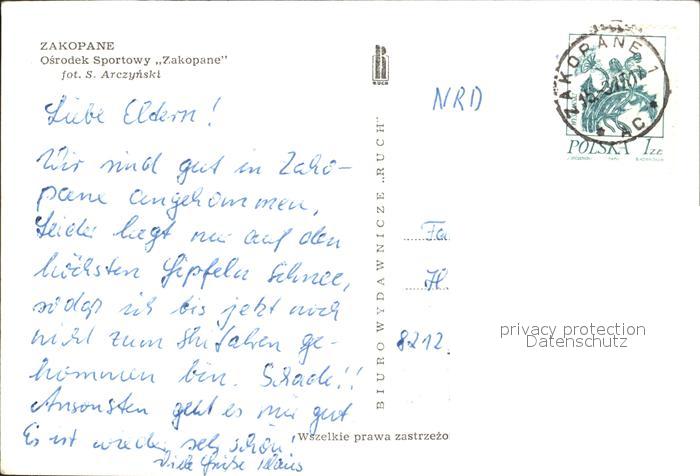 ZAKOPANE
Ośrodek Sportowy „Zakopane”
fot. S. Arczyński
RUCH
NRD
ZAKOPANE 1
AC
POLSKA 1 ZŁ
Liebe Eltern!
Wir sind gut in Zako-
pane angekommen,
Leider liegt nur auf den
höchsten Gipfeln Schnee,
sodaß ich bis jetzt noch
nicht zum Skifahren ge-
kommen bin. Schade!!
Ansonsten geht es mir gut
Es ist wieder sehr schön!
Viele Grüße Klaus
BIURO WYDAWNICZE „RUCH”
Fa
H
8212
privacy protection
Datenschutz
Wszelkie prawa zastrzeżo